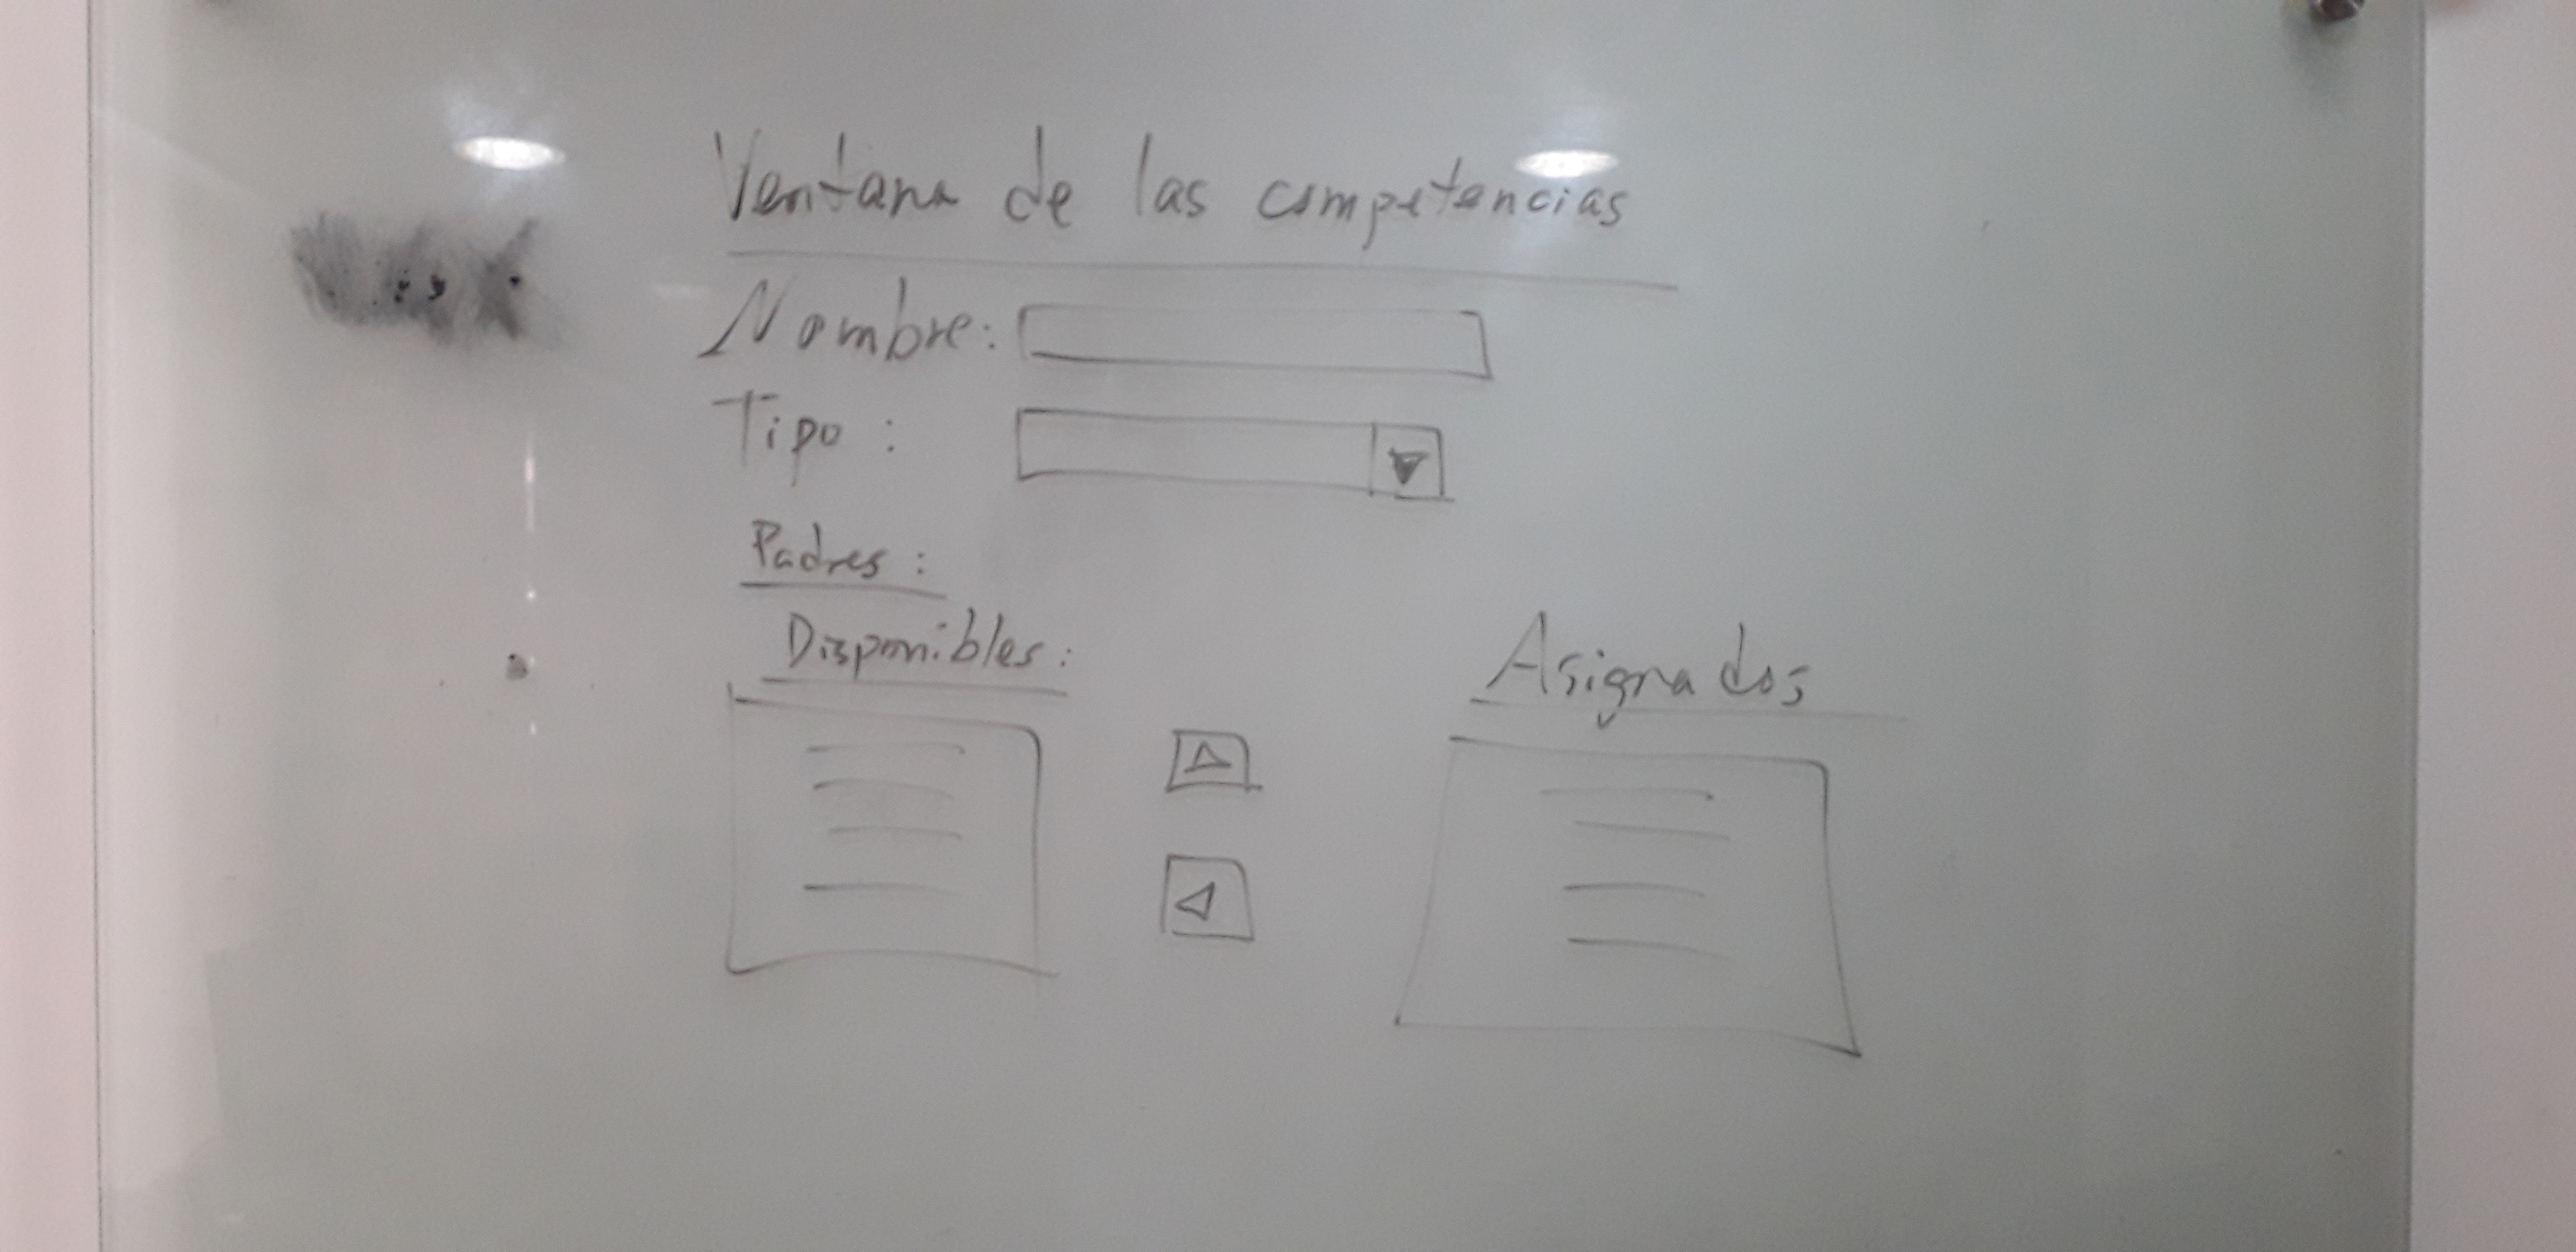 Ventana de las competencias
Nombre:
Tipo :
Padres :
Disponibles :
Asignados